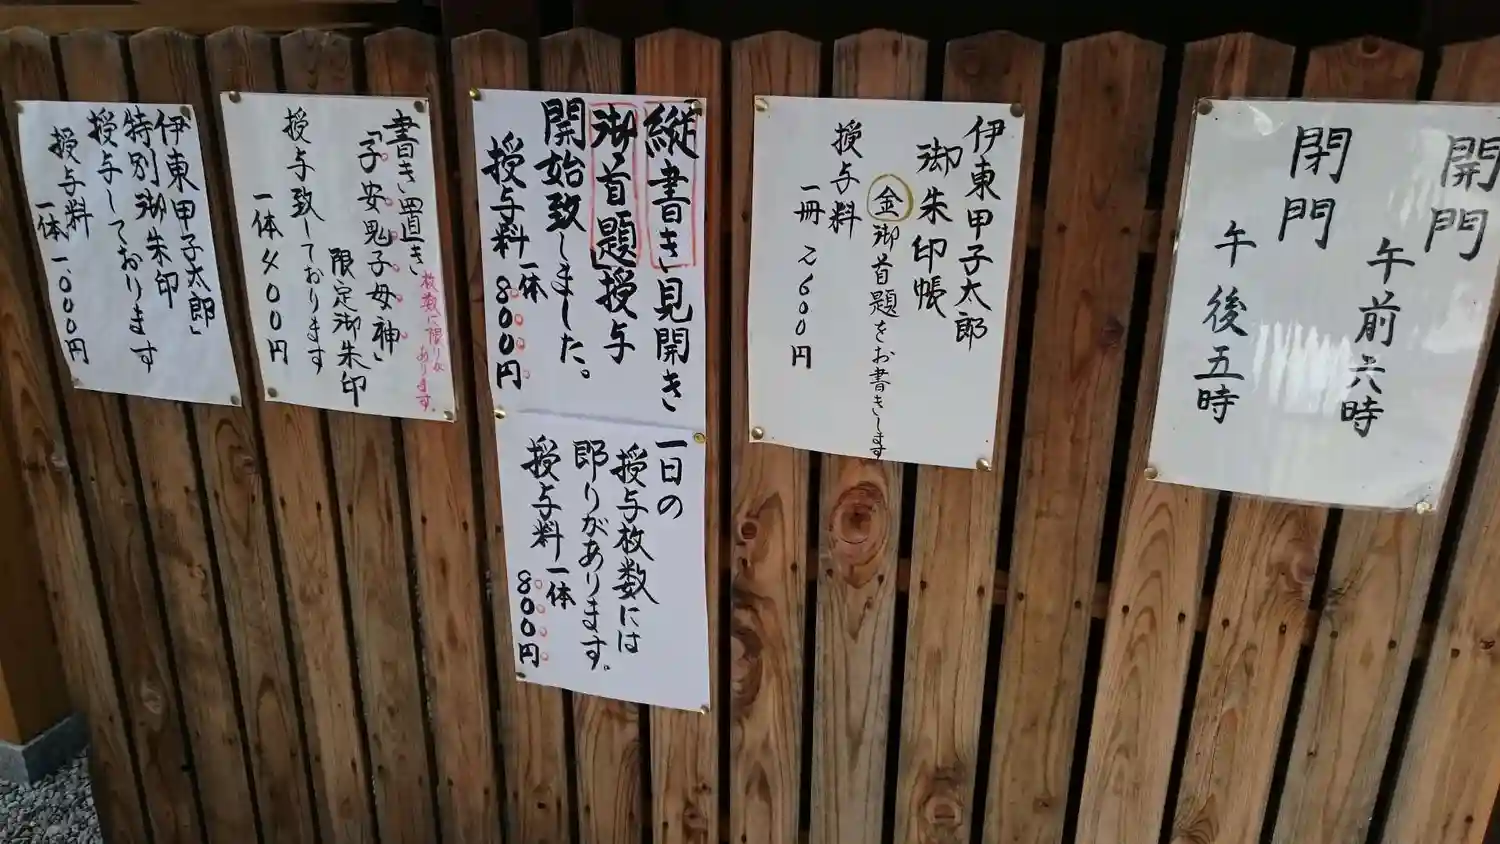 開門
午前六時
閉門
午後五時
伊東甲子太郎
御朱印帳
金御首題をお書きします
授与料
一冊 2600円
縦書き見開き
「御首題」授与
開始致しました。
授与料一体
800円
一日の
授与枚数には
限りがあります。
授与料一体
800円
書き置き
枚数に限りが
あります。
「子安鬼子母神」
限定御朱印
授与致しております
一体 400円
伊東甲子太郎」
特別御朱印
授与しております
授与料
一体一、000円